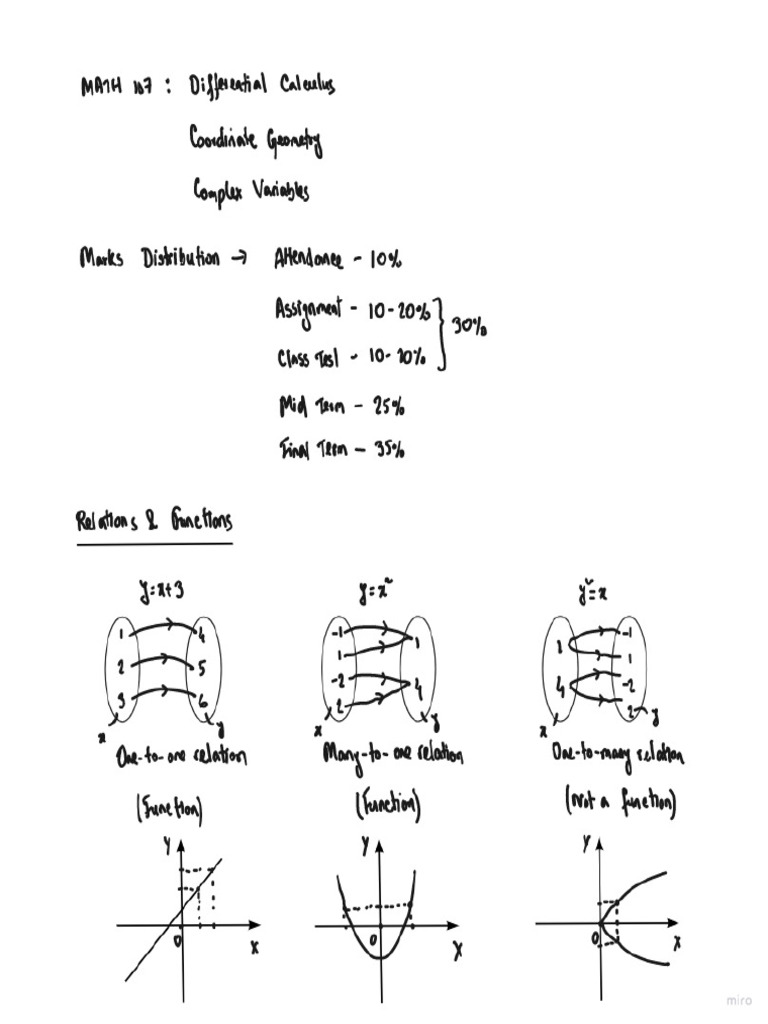 MATH 107 : Differential Calculus
Coordinate Geometry
Complex Variables
Marks Distribution → Attendance - 10%
Assignment - 10-20% } 30%
Class Test - 10-20%
Mid Term - 25%
Final Term - 35%
Relations & Functions
y=x+3 y=x² y²=x
1 4 -1 1 1 -1
2 5 1 1
3 6 -2 4 4 -2
2 2
x y x y x y
One-to-one relation Many-to-one relation One-to-many relation
(Function) (Function) (not a function)
Y Y Y
0 X 0 X 0 X
miro